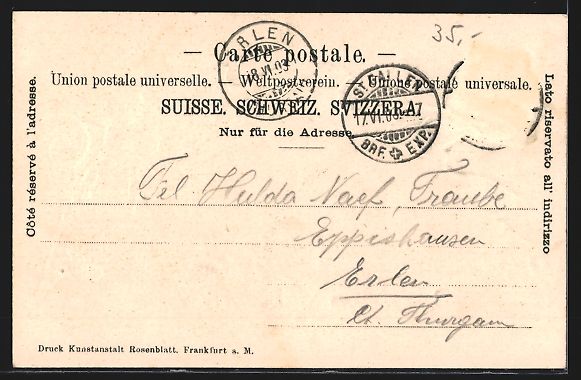 35.-
— Carte postale. —
Union postale universelle. — Weltpostverein. — Unione postale universale.
SUISSE. SCHWEIZ. SVIZZERA.
Nur für die Adresse.
Côté réservé à l'adresse.
Lato riservato all' indirizzo
ERLEN
18.VI.03
ST. GALLEN
17.VI.03
BRF. EXP.
Frl. Hulda Naef, Traube
Eppishausen
Erlen
Ct. Thurgau
Druck Kunstanstalt Rosenblatt. Frankfurt a. M.